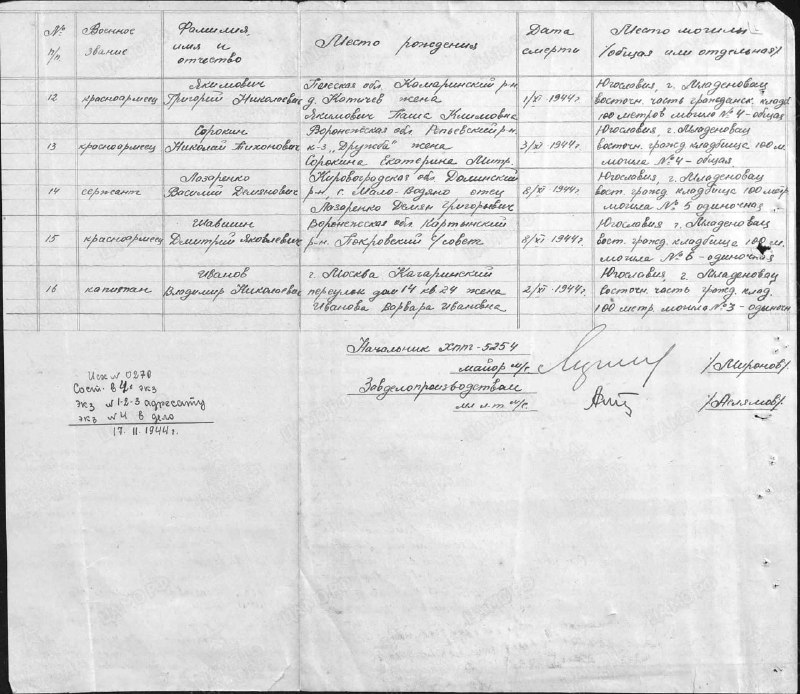 № п/п
Военное звание
Фамилия, имя и отчество
Место рождения
Дата смерти
Место могилы /общая или отдельная/
12
красноармеец
Якимович
Григорий Николаевич
обл. Комаринский р-н
д. Катичев жена
Якимович Паша Климовна
1/XI 1944г
Югославия, г. Младеновац
восточн. часть гражданск. кладб
100 метров могила № 4 - общая
13
красноармеец
Сорокин
Николай Тихонович
Воронежская обл. Репьевский р-н.
к-з "Дружба" жена
Сорокина Екатерина Митр.
3/XI 1944г
Югославия, г. Младеновац
восточн. гражд кладбище 100 м.
могила № 4 - общая
14
сержант
Лазаренко
Василий Демянович
Кировоградская обл. Долинский
р-н, с. Мало-Водяно отец
Лазаренко Демян Григорьевич
8/XI 1944г
Югославия, г. Младеновац
вост. гражд кладбище 100 метр
могила № 5 одиночная
15
красноармеец
Шавшин
Дмитрий Яковлевич
Воронежская обл
р-н. Покровский с/совет
8/XI 1944г.
Югославия г. Младеновац
вост. гражд. кладбище 100 м.
могила № 6 - одиночная
16
капитан
Иванов
Владимир Николаевич
г. Москва Кагаринский
переулок дом 14 кв 24 жена
Иванова Варвара Ивановна
2/XI 1944г
Югославия, г. Младеновац
Восточн. часть гражд. клад.
100 метр. могила № 3 - одиночн
Начальник ХППГ-5254
майор м/с.
/Миронов/
Завделопроизводством
мл л-т м/с.
/Аслямов/
Исх № 0270
Сост. в 4х экз
экз № 1-2-3 адресату
экз № 4 в дело
17. 11. 1944г.